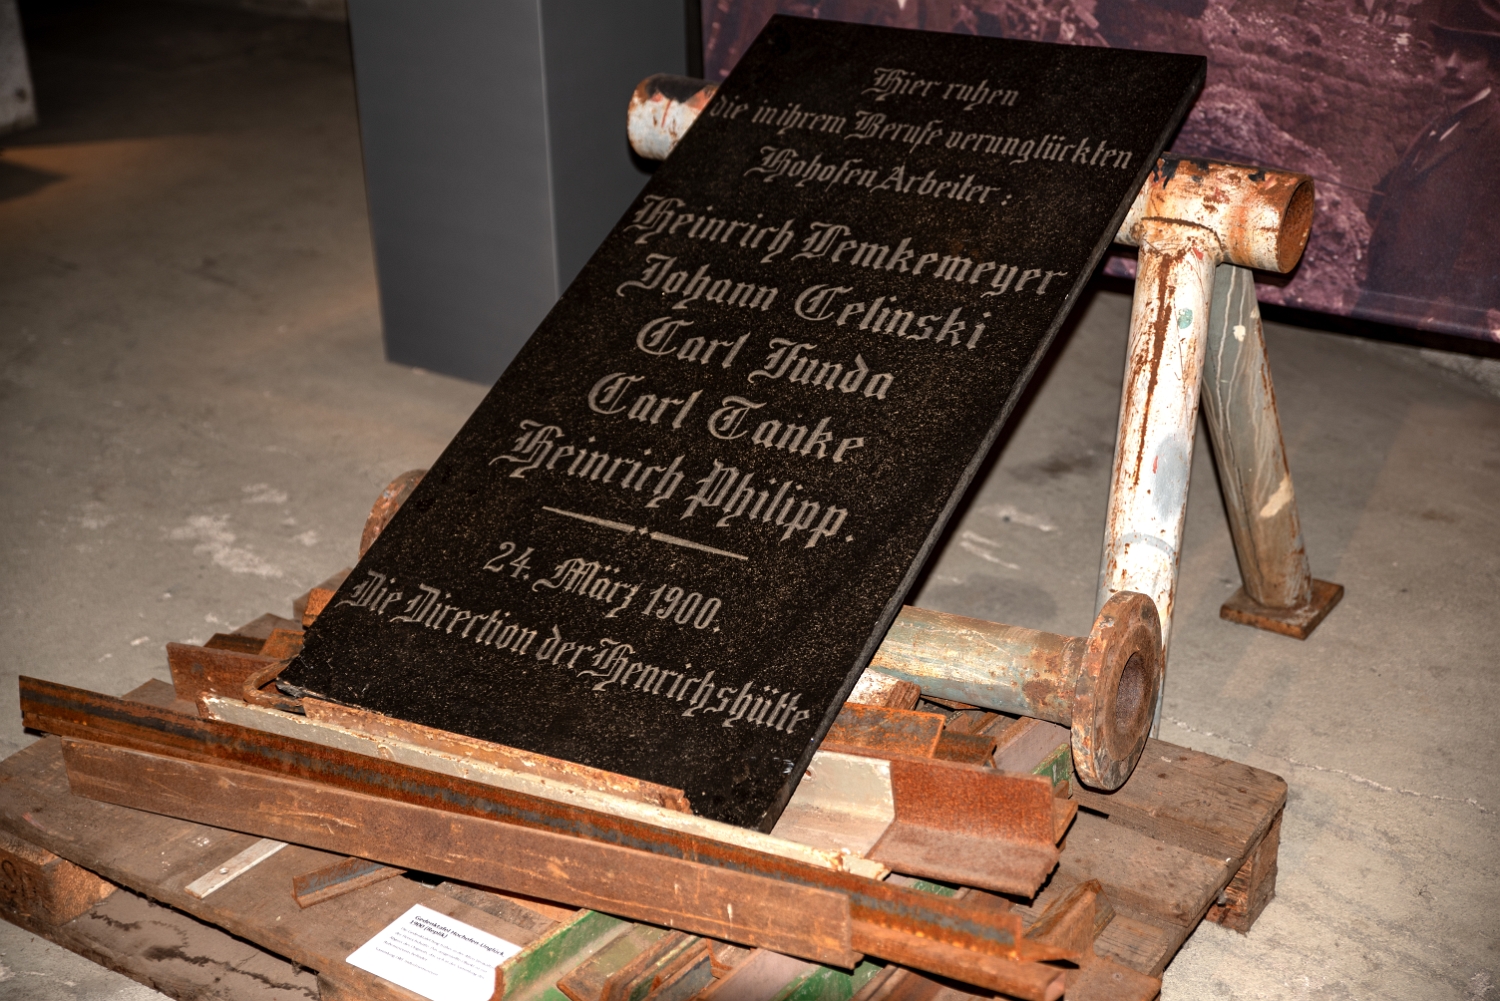 Hier ruhen
die in ihrem Berufe verunglückten
Hohofen Arbeiter:
Heinrich Temkemeyer
Johann Celinski
Carl Funda
Carl Tanke
Heinrich Philipp.
24. März 1900.
Die Direction der Henrichshütte
Gedenktafel Hochofen-Unglück
1900 (Replik)